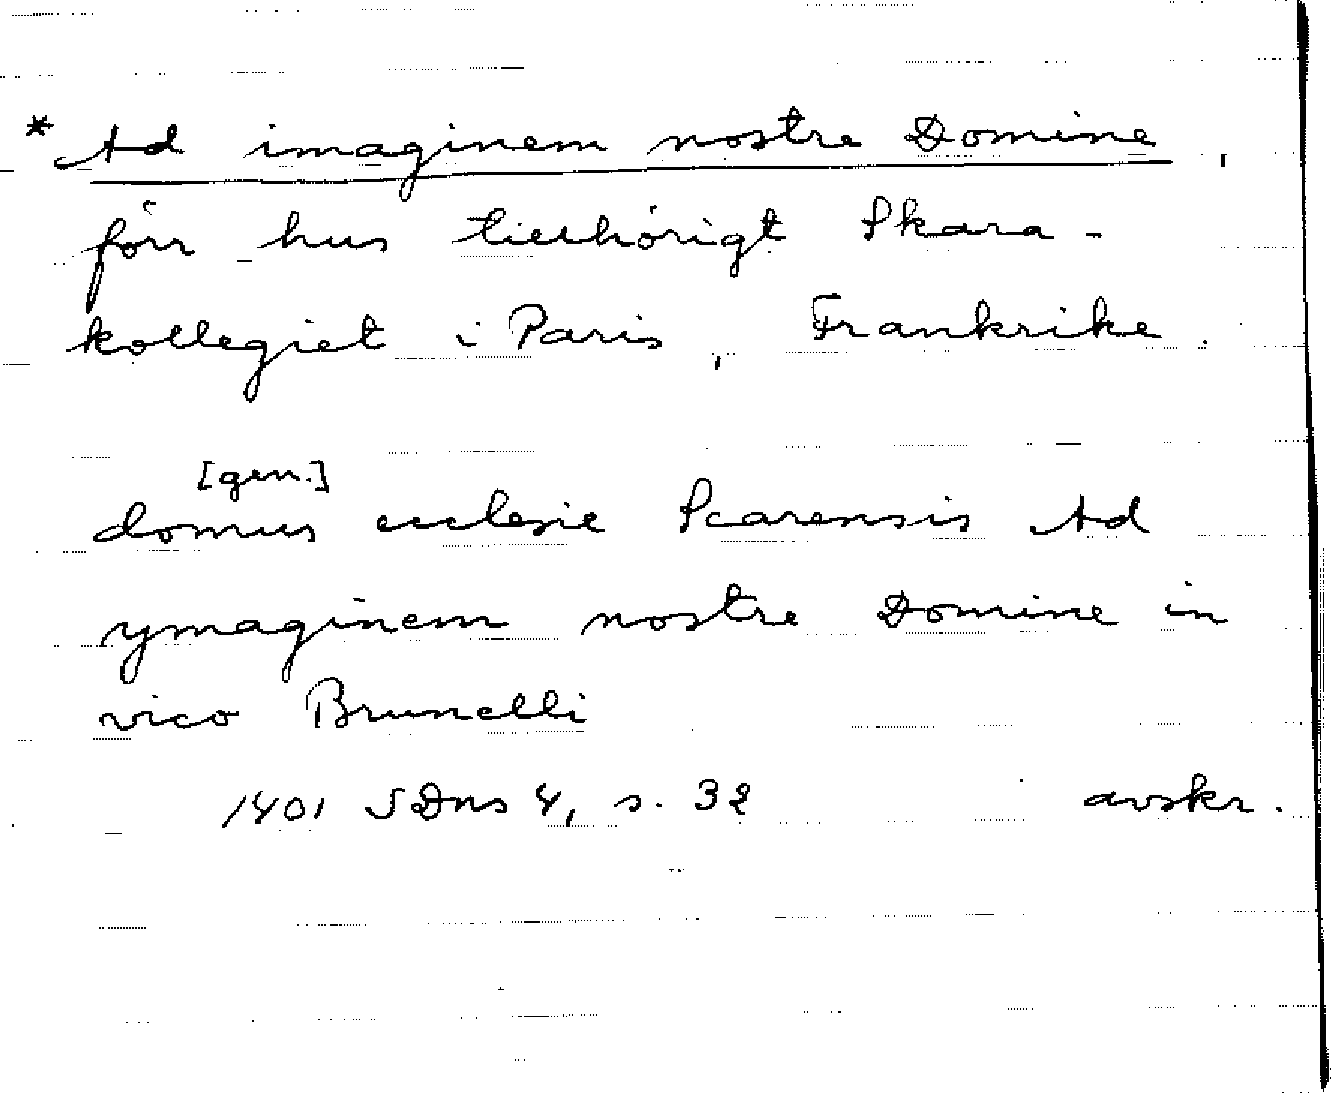 * Ad imaginem nostre Domine,
förr hus tillhörigt Skara-
kollegiet i Paris, Frankrike.
[gen.]
domus ecclesie Scarensis Ad
ymaginem nostre Domine in
vico Brunelli
1401 SDns 4, s. 32 avskr.